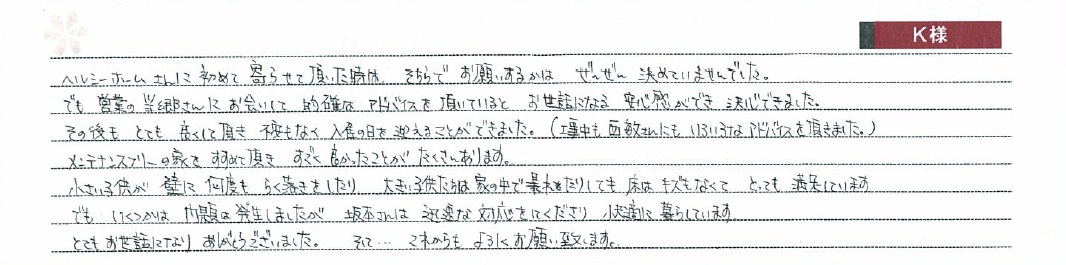 K様
ヘルシーホームさんに初めて寄らせて頂いた時は、そちらでお願いするかは ぜんぜん 決めていませんでした。
でも 営業の さんにお会いして 的確な アドバイスを頂いていると お世話になる 安心感ができ 決心できました。
その後も とても 良くして頂き 不安もなく 入居の日を迎えることができました。(工事中も さんにも いろいろなアドバイスを頂きました。)
メンテナンスフリーの家を すすめて頂き すごく良かったことが たくさんあります。
小さい子供が 壁に 何度も らく落きをしたり 大きい子供たちは家の中で暴れたりしても 床はキズもなくて とっても 満足しています
でも いくつかは 問題は発生しましたが 坂本さんは 迅速な対応をしてくださり 快適に暮らしています
とてもお世話になり ありがとうございました。 そして… これからも よろしくお願い致します。